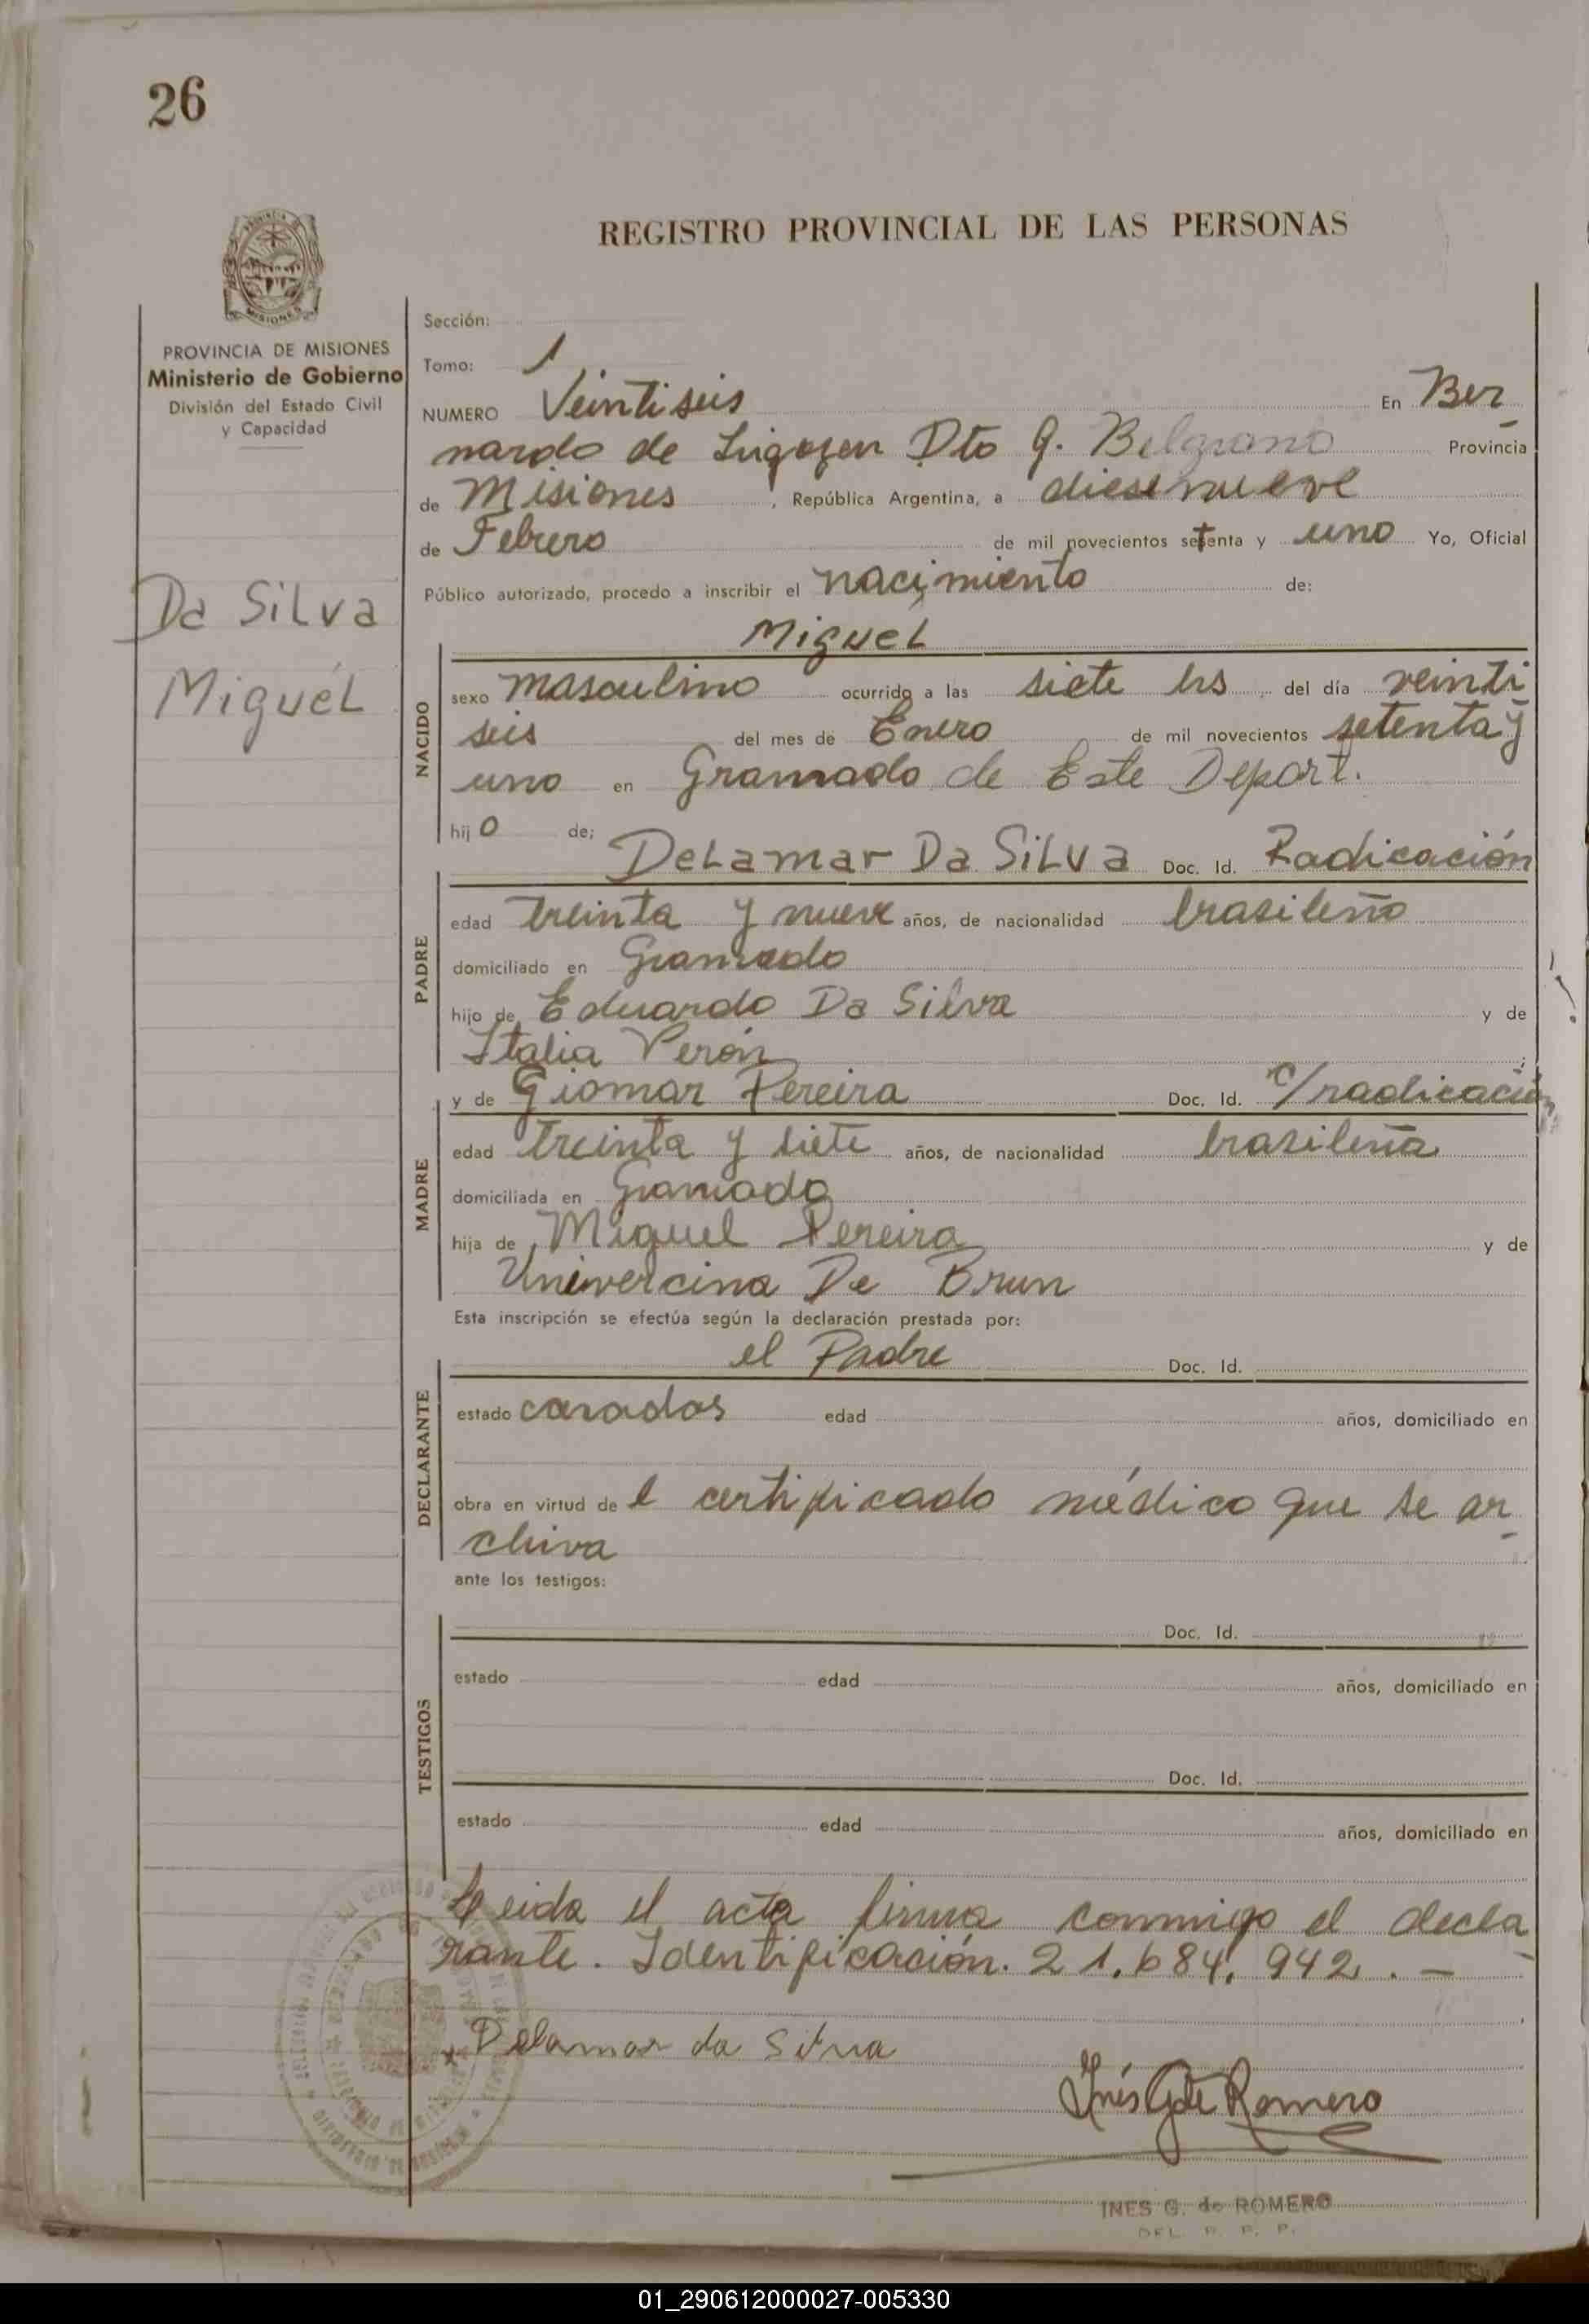 26
REGISTRO PROVINCIAL DE LAS PERSONAS
PROVINCIA DE MISIONES
Ministerio de Gobierno
División del Estado Civil
y Capacidad
Da Silva
Miguel
Sección:
Tomo: 1
NUMERO Veintiseis En Ber-
nardo de Irigoyen Dto G. Belgrano Provincia
de Misiones, República Argentina, a diesenueve
de Febrero de mil novecientos setenta y uno Yo, Oficial
Público autorizado, procedo a inscribir el nacimiento de:
Miguel
NACIDO
sexo masculino ocurrido a las siete hs del día veinti
seis del mes de Enero de mil novecientos setenta y
uno en Gramado de Este Depart.
hijo de; Delamar Da Silva Doc. Id. Radicación
PADRE
edad treinta y nueve años, de nacionalidad brasileño
domiciliado en Gramado
hijo de Eduardo Da Silva y de
Italia Verón;
y de Giomar Pereira Doc. Id. c/radicación
MADRE
edad treinta y siete años, de nacionalidad brasileña
domiciliada en Gramado
hija de Miguel Pereira y de
Univercina De Brun
Esta inscripción se efectúa según la declaración prestada por:
el Padre Doc. Id.
DECLARANTE
estado casados edad años, domiciliado en
obra en virtud de l certificado médico que se ar-
chiva
ante los testigos:
Doc. Id.
TESTIGOS
estado edad años, domiciliado en
Doc. Id.
estado edad años, domiciliado en
Leida el acta firma conmigo el decla-
rante. Identificación. 21.684.942. —
x Delamar da Silva
Inés G de Romero
INES G. de ROMERO
DEL R. P. P.
01_290612000027-005330